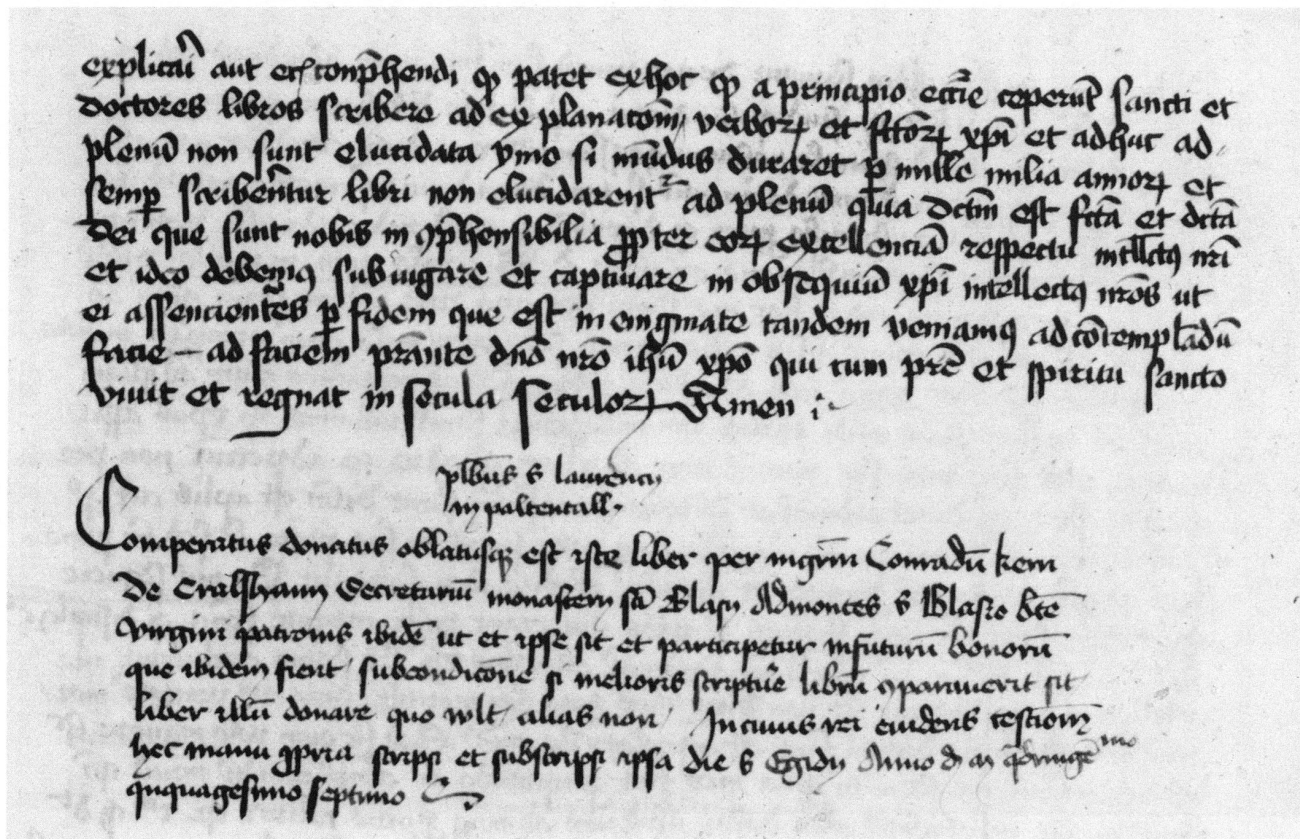 explicari aut et conp̄hendi qꝫ patet ex hoc qꝫ a principio eccīe ceperūt sancti et
doctores libros scribere ad explanacōm verboꝝ et fc̄toꝝ xp̄i et adhuc ad
plenū non sunt elucidata ymo si mūdus duraret ꝑ mille milia annoꝝ et
semꝑ scribērntur libri non elucidarent᷑ ad plenū quia dc̄tm est fc̄ta et dc̄ta
dei que sunt nobis in ꝯp̄hensibilia ꝓpter eoꝝ excellenciā respectu intllc̄tꝰ nr̄i
et ideo debemꝰ subiugare et captiuare in obsequiū xp̄i intellectꝰ nr̄os ut
ei assencientes ꝑ fidem que est in enigmate tandem veniamꝰ ad cōtemplādū
facie ad faciem p̄rante dn̄o nr̄o ihū xp̄o qui cum pr̄e et spiritu sancto
viuit et regnat in secula seculoꝝ Amen
plb̄nus s laurencij
in paltentall
Comperatus donatus oblatusqꝫ est iste liber per mgr̄m Conradū kern
de Cralshaim Secretariū monasterij sc̄i Blasij Admontēs s Blasio bt̄e
virgini patronis ibidē ut et ipse sit et participetur in futurū bonorū
que ibidem fient subcondicōne si melioris scriptūe librū ꝯparauerit sit
liber illū donare quo wlt alias non In cuius rei euidens testīom
hec manu ꝓpria scripsi et subscripsi ipsa die s Egidij Anno d m qdringē mo
ququagesimo septimo